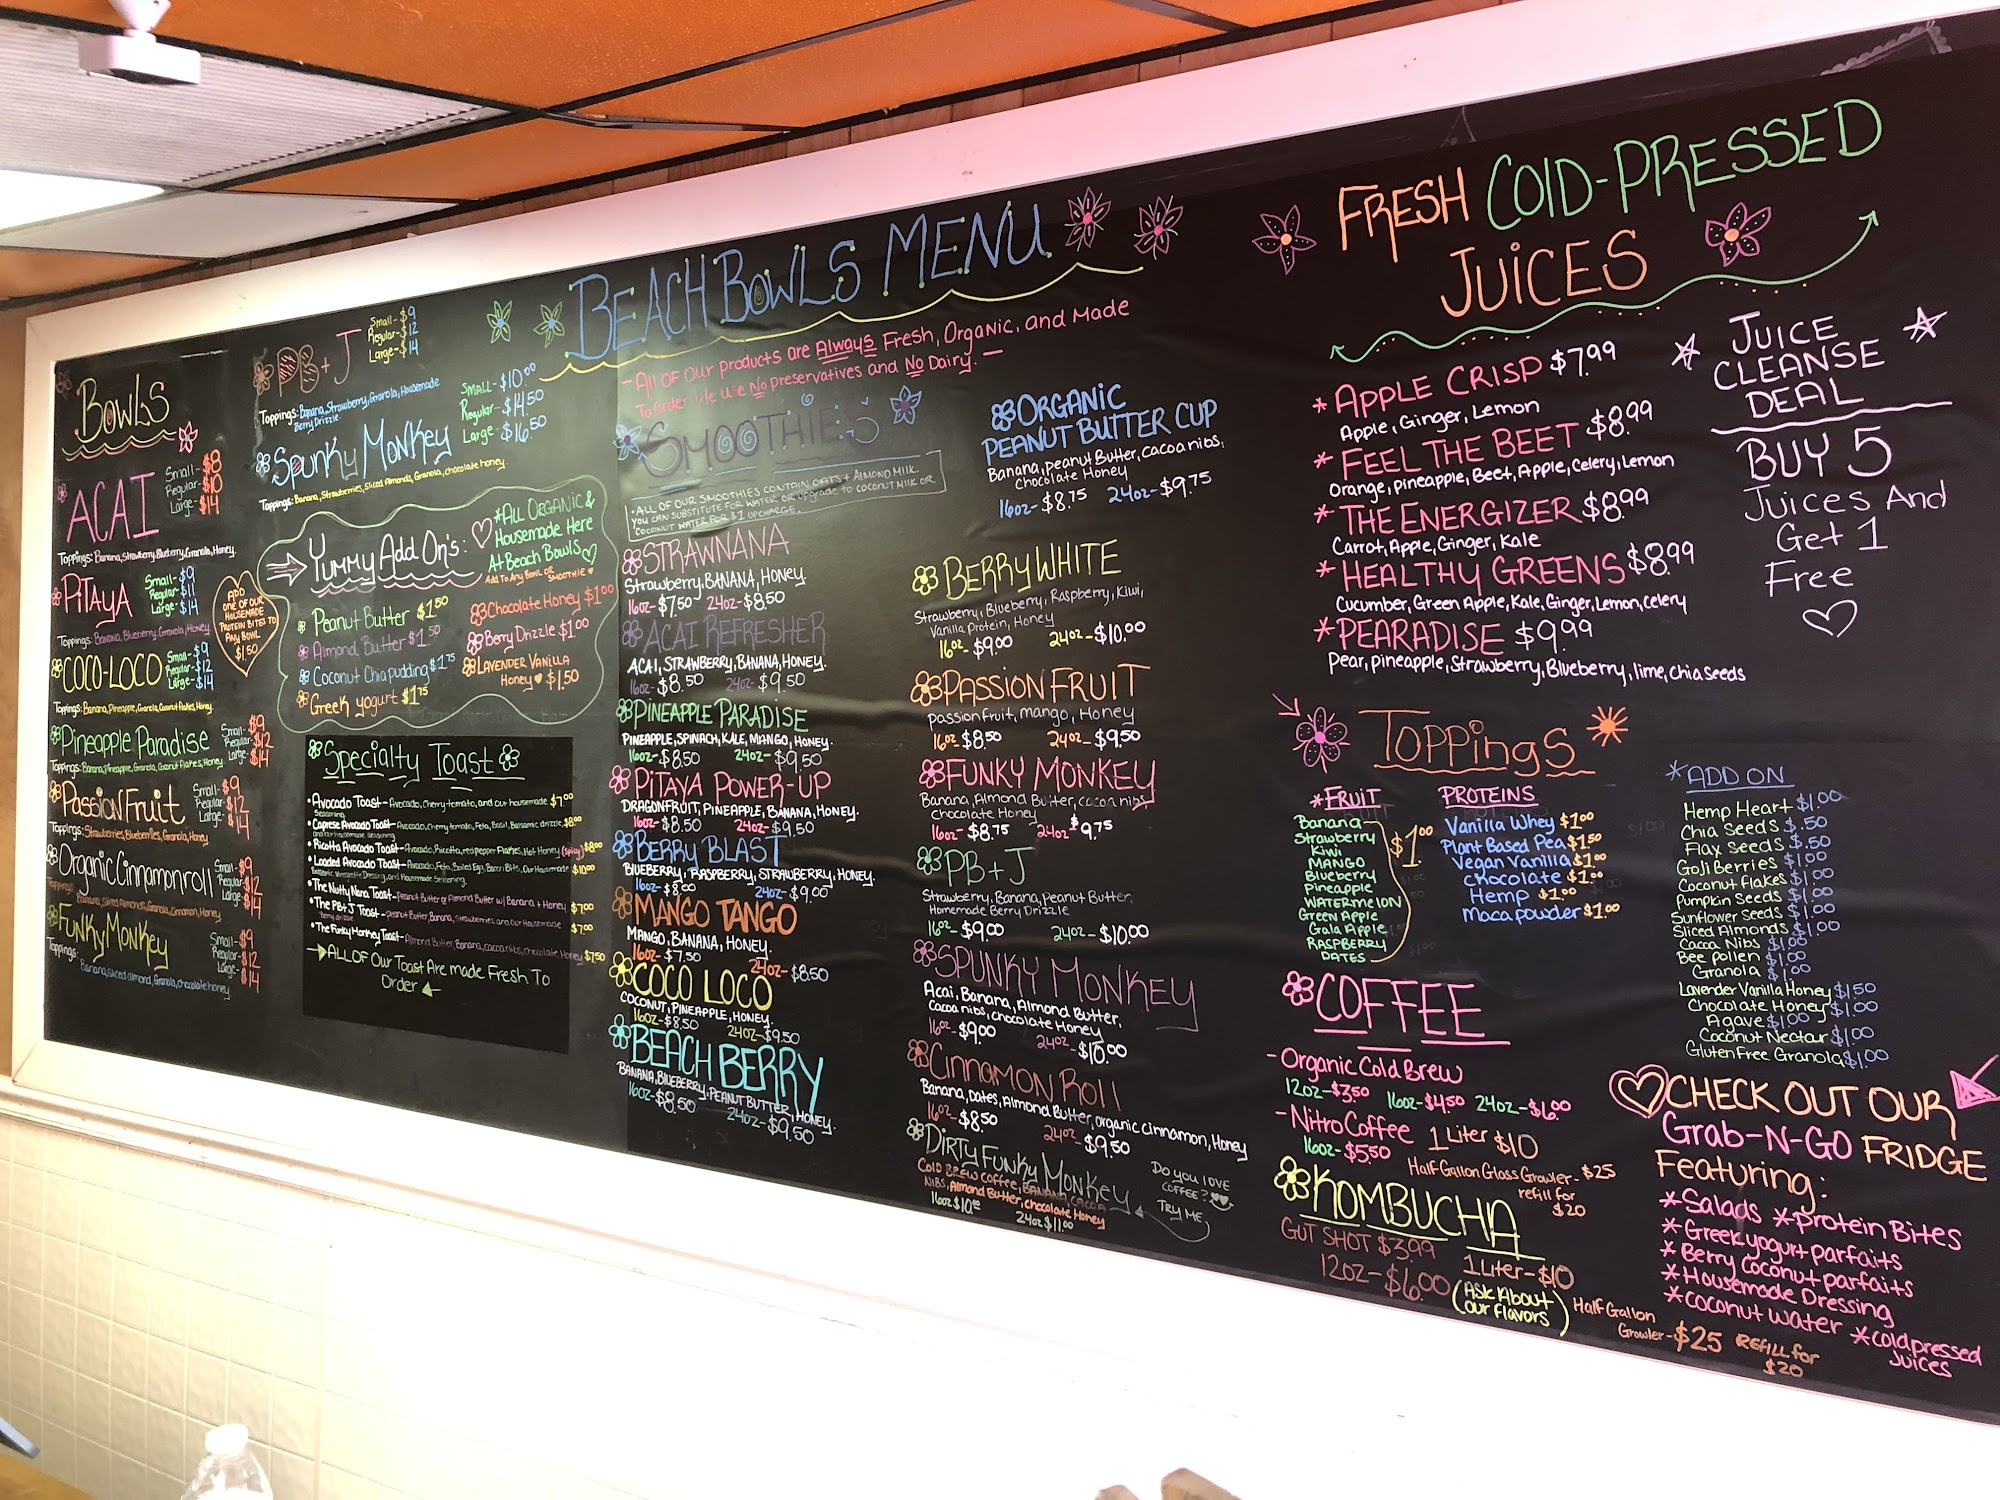 BEACH BOWLS MENU
- All of our products are Always Fresh, Organic, and Made
To Order. We use No preservatives and No Dairy. -
BOWLS
ACAI
Small - $8
Regular - $10
Large - $14
Toppings: Banana, Strawberry, Blueberry, Granola, Honey.
PITAYA
Small - $9
Regular - $11
Large - $14
Toppings: Banana, Blueberry, Granola, Honey.
COCO-LOCO
Small - $9
Regular - $12
Large - $14
Toppings: Banana, Pineapple, Granola, Coconut flakes, Honey.
Pineapple Paradise
Small - $9
Regular - $12
Large - $14
Toppings: Banana, Pineapple, Granola, Coconut Flakes, Honey
Passion Fruit
Small - $9
Regular - $12
Large - $14
Toppings: Strawberries, Blueberries, Granola, Honey
Organic Cinnamon roll
Small - $9
Regular - $12
Large - $14
Toppings:
Banana, Sliced Almonds, Granola, Cinnamon, Honey
Funky Monkey
Small - $9
Regular - $12
Large - $14
Toppings:
Banana, sliced almond, Granola, chocolate honey
ADD
ONE OF OUR
HOUSEMADE
PROTEIN BITES TO
ANY BOWL
$1.50
PB + J
Small - $9
Regular - $12
Large - $14
Toppings: Banana, Strawberry, Granola, Housemade
Berry Drizzle
Spunky Monkey
SMALL - $10.00
Regular - $14.50
Large - $16.50
Toppings: Banana, Strawberries, Sliced Almonds, Granola, chocolate honey
Yummy Add On's:
*ALL ORGANIC &
Housemade Here
At Beach Bowls
Add To Any Bowl or Smoothie
Peanut Butter $1.50
Almond Butter $1.50
Coconut Chia pudding $1.75
Greek yogurt $1.75
Chocolate Honey $1.00
Berry Drizzle $1.00
LAVENDER VANILLA
Honey $1.50
Specialty Toast
• Avocado Toast - Avocado, Cherry tomato, and our housemade $7.00
Seasoning
• Caprese Avocado Toast - Avocado, Cherry tomato, Feta, Basil, Balsamic drizzle, $8.00
and our housemade seasoning
• Ricotta Avocado Toast - Avocado, Ricotta, red pepper flakes, Hot Honey (spicy) $8.00
• Loaded Avocado Toast - Avocado, Feta, Boiled Egg, Bacon Bits, Our Housemade $10.00
Balsamic Vinegarette Dressing, and Housemade Seasoning.
• The Nutty Nana Toast - Peanut Butter or Almond Butter w/ Banana + Honey $7.00
• The PB+J Toast - Peanut Butter, Banana, Strawberries and Our Housemade
Berry drizzle $7.00
• The Funky Monkey Toast - Almond Butter, Banana, cacao nibs, chocolate Honey $7.50
→ ALL OF Our Toast Are made Fresh To
Order ←
SMOOTHIES
• ALL OF OUR SMOOTHIES CONTAIN OATS + ALMOND MILK.
YOU CAN SUBSTITUTE FOR WATER OR UPGRADE TO COCONUT MILK OR
COCONUT WATER FOR $1 UPCHARGE.
STRAWNANA
Strawberry, BANANA, HONEY.
16oz - $7.50 24oz - $8.50
ACAI REFRESHER
ACAI, STRAWBERRY, BANANA, HONEY.
16oz - $8.50 24oz - $9.50
PINEAPPLE PARADISE
PINEAPPLE, SPINACH, KALE, MANGO, HONEY.
16oz - $8.50 24oz - $9.50
PITAYA POWER-UP
DRAGONFRUIT, PINEAPPLE, BANANA, HONEY.
16oz - $8.50 24oz - $9.50
BERRY BLAST
BLUEBERRY, RASPBERRY, STRAWBERRY, HONEY.
16oz - $8.00 24oz - $9.00
MANGO TANGO
MANGO, BANANA, HONEY.
16oz - $7.50 24oz - $8.50
COCO LOCO
COCONUT, PINEAPPLE, HONEY.
16oz - $8.50 24oz - $9.50
BEACH BERRY
BANANA, BLUEBERRY, PEANUT BUTTER, HONEY.
16oz - $8.50 24oz - $9.50
ORGANIC
PEANUT BUTTER CUP
Banana, peanut Butter, cacao nibs,
Chocolate Honey
16oz - $8.75 24oz - $9.75
BERRY WHITE
Strawberry, Blueberry, Raspberry, Kiwi,
Vanilla Protein, Honey
16oz - $9.00 24oz - $10.00
PASSION FRUIT
Passion fruit, Mango, Honey
16oz - $8.50 24oz - $9.50
FUNKY MONKEY
Banana, Almond Butter, cacao nibs
Chocolate Honey
16oz - $8.75 24oz - $9.75
PB + J
Strawberry, Banana, Peanut Butter,
Homemade Berry Drizzle
16oz - $9.00 24oz - $10.00
SPUNKY MONKEY
Acai, Banana, Almond Butter,
Cacao nibs, chocolate Honey
16oz - $9.00 24oz - $10.00
Cinnamon Roll
Banana, Dates, Almond Butter, organic cinnamon, Honey
16oz - $8.50 24oz - $9.50
DIRTY FUNKY MONKEY
COLD BREW COFFEE, BANANA, CACAO
NIBS, Almond Butter, chocolate Honey
16oz $10.00 24oz $11.00
DO YOU LOVE
COFFEE?
TRY ME
FRESH COLD-PRESSED
JUICES
* APPLE CRISP $7.99
Apple, Ginger, Lemon
* FEEL THE BEET $8.99
Orange, pineapple, Beet, Apple, celery, Lemon
* THE ENERGIZER $8.99
Carrot, Apple, Ginger, Kale
* HEALTHY GREENS $8.99
Cucumber, Green Apple, Kale, Ginger, Lemon, celery
* PEARADISE $9.99
Pear, pineapple, Strawberry, Blueberry, lime, chia seeds
JUICE
CLEANSE
DEAL
BUY 5
Juices And
Get 1
Free
Toppings
* FRUIT
Banana
Strawberry
Kiwi
MANGO
Blueberry
Pineapple
WATERMELON
Green Apple
Gala Apple
RASPBERRY
DATES
$1.00
PROTEINS
Vanilla Whey $1.00
Plant Based Pea $1.50
Vegan Vanilla $1.00
chocolate $1.00
Hemp $1.00
Maca powder $1.00
* ADD ON
Hemp Heart $1.00
Chia Seeds $.50
Flax Seeds $.50
Goji Berries $1.00
Coconut flakes $1.00
Pumpkin Seeds $1.00
Sunflower Seeds $1.00
Sliced Almonds $1.00
Cacao Nibs $1.00
Bee pollen $1.00
Granola $1.00
Lavender Vanilla Honey $1.50
Chocolate Honey $1.00
Agave $1.00
Coconut Nectar $1.00
Gluten Free Granola $1.00
COFFEE
- Organic Cold Brew
12oz - $3.50 16oz - $4.50 24oz - $6.00
- Nitro Coffee 1 Liter $10
16oz - $5.50 Half Gallon Glass Growler - $25
refill for
$20
KOMBUCHA
GUT SHOT $3.99
12oz - $6.00
1 Liter - $10
(Ask About
our flavors)
Half Gallon
Growler - $25 REFILL for
$20
CHECK OUT OUR
Grab-N-GO FRIDGE
Featuring:
* Salads * Protein Bites
* Greek yogurt parfaits
* Berry Coconut parfaits
* Housemade Dressing
* coconut water * cold pressed
juices